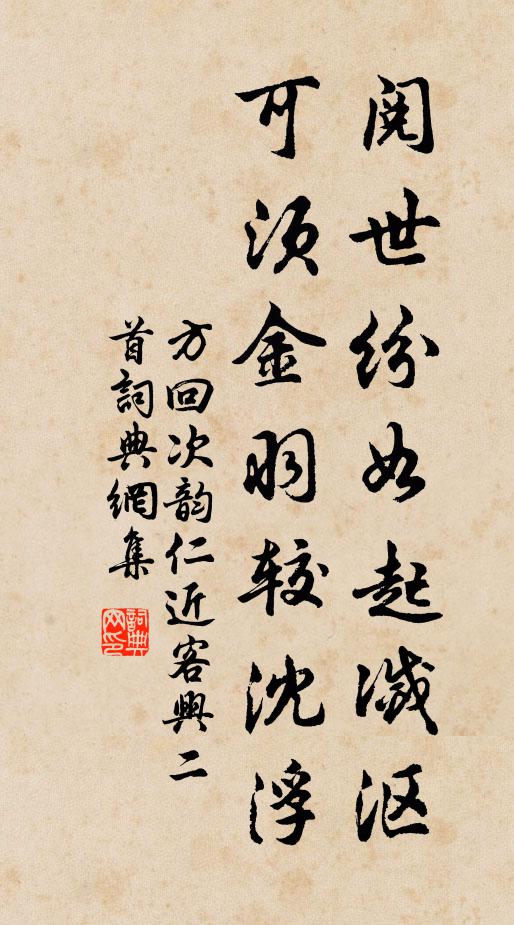 阅世纷如起灭沤
可须金羽较沈浮
方回次韵仁近客興二
首詞典網集
詞典网印